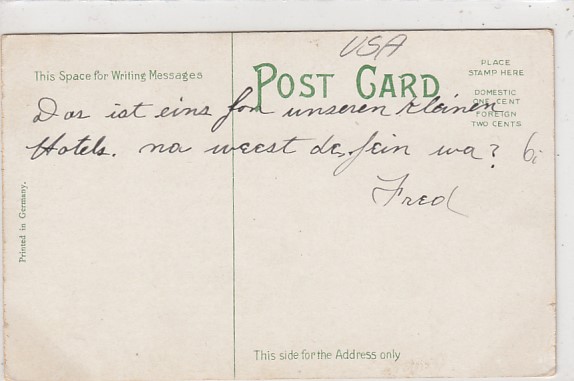 USA
PLACE
STAMP HERE
This Space for Writing Messages
POST CARD
DOMESTIC
ONE CENT
FOREIGN
TWO CENTS
Das ist eins fom unseren kleinen
Hotels. na weest de, fein wa?
Fred
Printed in Germany.
This side for the Address only